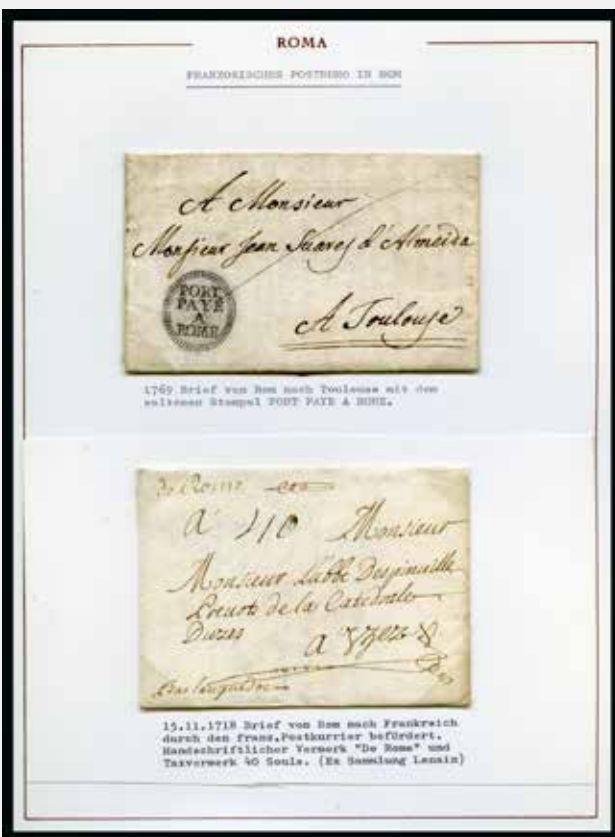 ROMA
FRANZÖSISCHES POSTBÜRO IN ROM
A Monsieur
Monsieur Jean Suares d'Almeida
PORT
PAYÉ
A
ROME
A Toulouse
1769 Brief von Rom nach Toulouse mit dem
seltenen Stempel PORT PAYE A ROME.
De Rome
a Monsieur
Monsieur Labbé Despinville
Preuot de la Catedrale
Duzes
a Vzez
Bas languedoc
15.11.1718 Brief von Rom nach Frankreich
durch den franz.Postkurrier befördert.
Handschriftlicher Vermerk "De Rome" und
Taxvermerk 40 Souls. (Ex Sammlung Lenain)